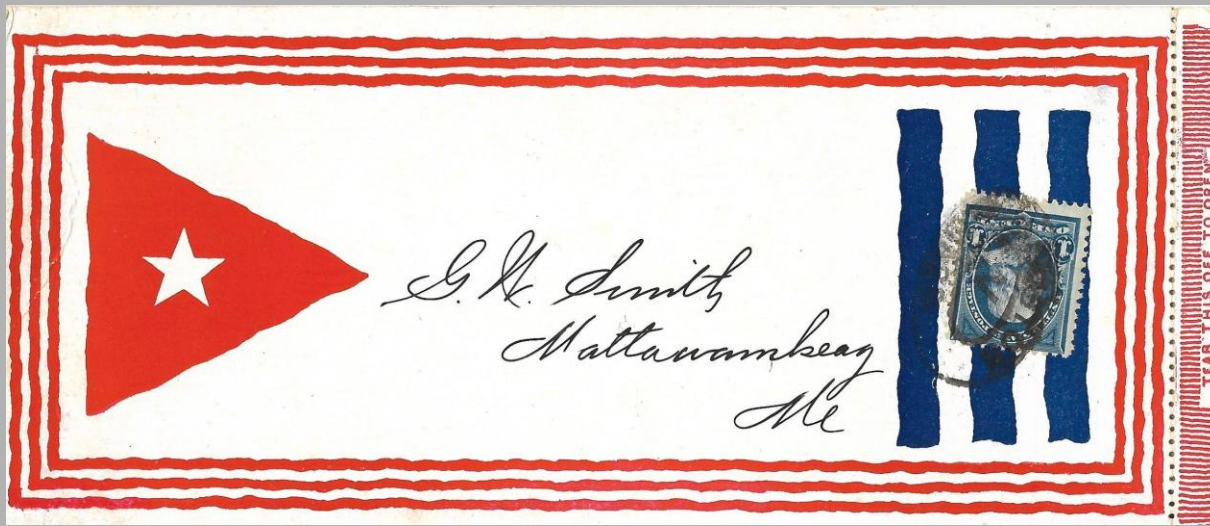 G. W. Smith
Mattawamkeag
Me
TEAR THIS OFF TO OPEN